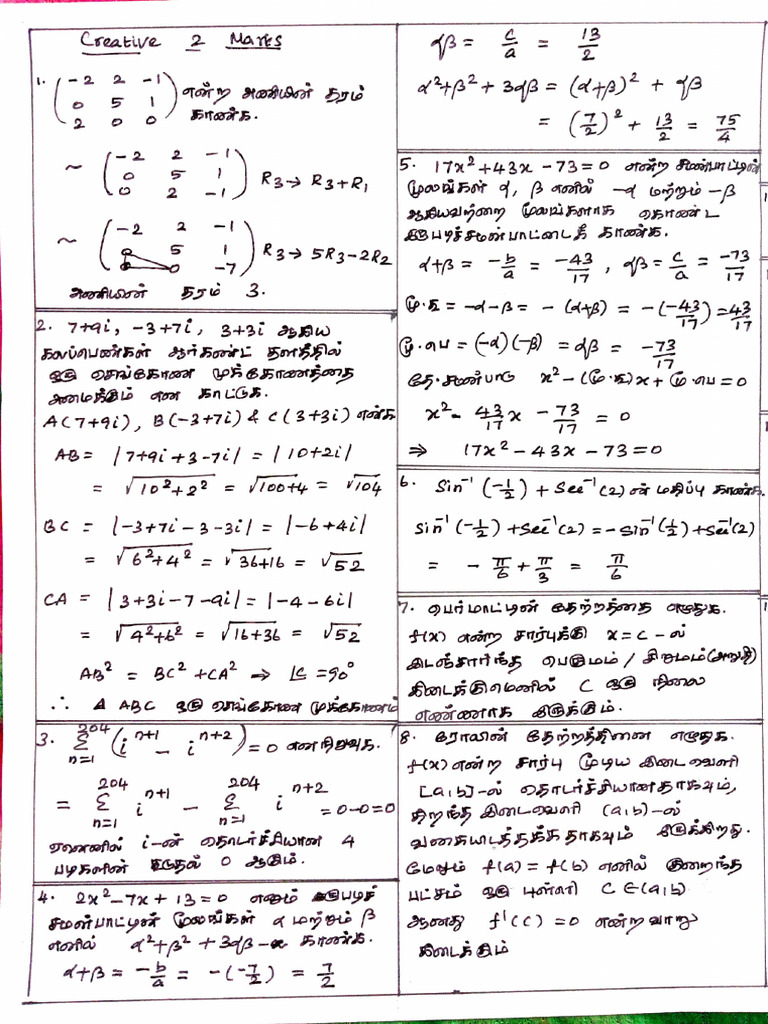 Creative 2 Marks
1. (-2 2 -1
0 5 1
2 0 0) என்ற அணியின் தரம்
காண்க.
~ (-2 2 -1
0 5 1
0 2 -1) R₃→ R₃+R₁
~ (-2 2 -1
0 5 1
0 0 -7) R₃→ 5R₃-2R₂
அணியின் தரம் 3.
2. 7+9i, -3+7i, 3+3i ஆகிய
கலப்பெண்கள் ஆர்கண்ட் தளத்தில்
ஒரு செங்கோண முக்கோணத்தை
அமைக்கும் என காட்டுக.
A(7+9i), B(-3+7i) & C(3+3i) என்க
AB = |7+9i+3-7i| = |10+2i|
= √(10²+2²) = √(100+4) = √104
BC = |-3+7i-3-3i| = |-6+4i|
= √(6²+4²) = √(36+16) = √52
CA = |3+3i-7-9i| = |-4-6i|
= √(4²+6²) = √(16+36) = √52
AB² = BC²+CA² ⇒ ∠C = 90°
∴ Δ ABC ஒரு செங்கோண முக்கோணம்
3. Σₙ₌₁²⁰⁴ (iⁿ⁺¹ - iⁿ⁺²) = 0 என நிறுவுக.
= Σₙ₌₁²⁰⁴ iⁿ⁺¹ - Σₙ₌₁²⁰⁴ iⁿ⁺² = 0-0=0
ஏனெனில் i-ன் தொடர்ச்சியான 4
படிகளின் கூடுதல் 0 ஆகும்.
4. 2x²-7x+13=0 எனும் இருபடிச்
சமன்பாட்டின் மூலங்கள் α மற்றும் β
எனில் α²+β²+3αβ- காண்க.
α+β = -b/a = -(-7/2) = 7/2
αβ = c/a = 13/2
α²+β²+3αβ = (α+β)² + αβ
= (7/2)² + 13/2 = 75/4
5. 17x²+43x-73=0 என்ற சமன்பாட்டின்
மூலங்கள் α, β எனில் -α மற்றும் -β
ஆகியவற்றை மூலங்களாக கொண்ட
இருபடிச்சமன்பாட்டைக் காண்க.
α+β = -b/a = -43/17, αβ = c/a = -73/17
மூ.கூ = -α-β = -(α+β) = -(-43/17) = 43/17
மூ.பெ = (-α)(-β) = αβ = -73/17
தே.சமன்பாடு x²-(மூ.கூ)x+மூ.பெ=0
x²- 43/17 x - 73/17 = 0
⇒ 17x²-43x-73=0
6. Sin⁻¹(-1/2) + Sec⁻¹(2) ன் மதிப்பு காண்க.
Sin⁻¹(-1/2) + Sec⁻¹(2) = -Sin⁻¹(1/2) + Sec⁻¹(2)
= -π/6 + π/3 = π/6
7. பெர்மாட்டின் தேற்றத்தை எழுதுக.
f(x) என்ற சார்புக்கு x=c-ல்
இடஞ்சார்ந்த பெருமம் / சிறுமம்(அறுதி)
கிடைக்குமெனில் C ஒரு நிலை
எண்ணாக இருக்கும்.
8. ரோலின் தேற்றத்தினை எழுதுக.
f(x) என்ற சார்பு மூடிய இடைவெளி
[a,b]-ல் தொடர்ச்சியானதாகவும்,
திறந்த இடைவெளி (a,b)-ல்
வகையிடத்தக்கதாகவும் இருக்கிறது.
மேலும் f(a) = f(b) எனில் குறைந்த
பட்சம் ஒரு புள்ளி C∈(a,b)
ஆனது f'(c) = 0 என்றவாறு
கிடைக்கும்